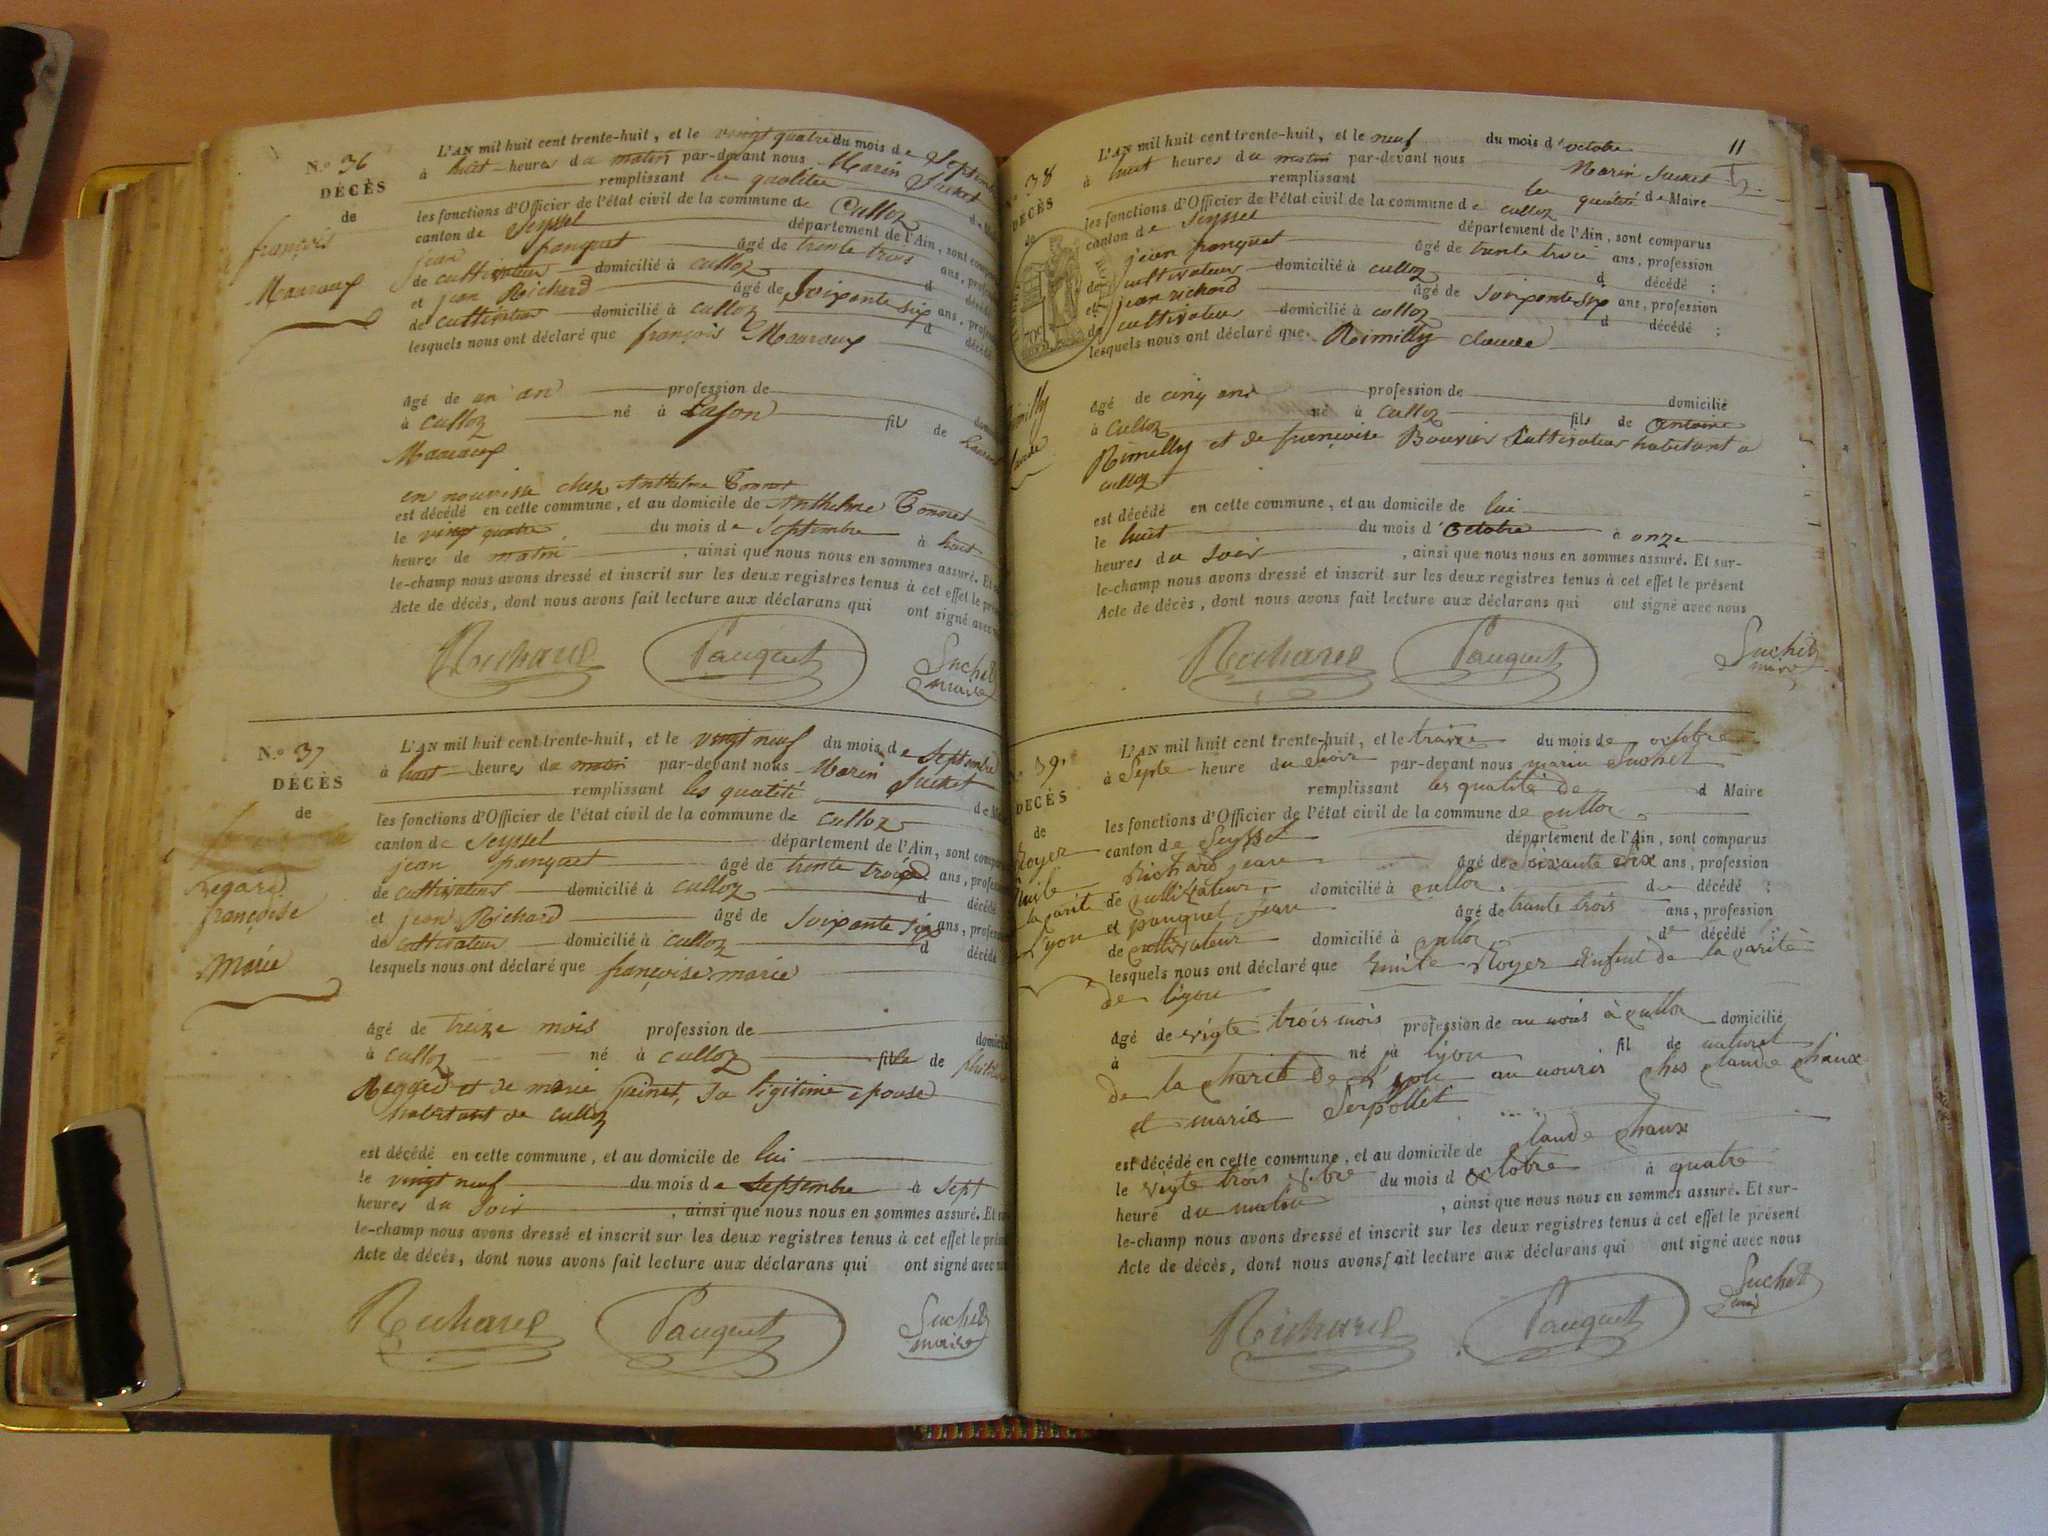 N.º 36
DÉCÈS
de
françois
Mauraux
L'AN mil huit cent trente-huit, et le vingt quatre du mois de Septembre
à huit heures du matin par-devant nous Marin Suchet
remplissant les qualités de
les fonctions d'Officier de l'état civil de la commune de Culloz
canton de Seyssel département de l'Ain, sont
jean panquet âgé de trente trois ans,
de cultivateur domicilié à culloz d décédé
et jean Richard âgé de Soixante six ans,
de cultivateur domicilié à culloz d décédé
lesquels nous ont déclaré que françois Mauraux
âgé de un an profession de
à culloz né à fils de
Mauraux
en nourisse chez Anthelme Tonnet
est décédé en cette commune, et au domicile de Anthelme Tonnet
le vingt quatre du mois de Septembre à huit
heures de matin, ainsi que nous nous en sommes assuré. Et
le-champ nous avons dressé et inscrit sur les deux registres tenus à cet effet le
Acte de décès, dont nous avons fait lecture aux déclarans qui ont signé avec
Richard Panquet Suchet
maire
N.º 37
DÉCÈS
de
Regard
françoise
Marie
L'AN mil huit cent trente-huit, et le vingt neuf du mois de Septembre
à huit heures du matin par-devant nous Marin Suchet
remplissant les quatité de
les fonctions d'Officier de l'état civil de la commune de culloz
canton de Seyssel département de l'Ain, sont
jean panquet âgé de trente trois ans,
de cultivateur domicilié à culloz d décédé
et jean Richard âgé de Soixante six ans,
de cultivateur domicilié à culloz d décédé
lesquels nous ont déclaré que françoise marie
âgé de treize mois profession de
à culloz né à culloz fille de
et de marie Sa légitime épouse
habitant de culloz
est décédé en cette commune, et au domicile de lui
le vingt neuf du mois de Septembre à sept
heures du Soir, ainsi que nous nous en sommes assuré. Et
le-champ nous avons dressé et inscrit sur les deux registres tenus à cet effet le
Acte de décès, dont nous avons fait lecture aux déclarans qui ont signé avec
Richard Panquet Suchet
maire
11
38
DÉCÈS
de
L'AN mil huit cent trente-huit, et le neuf du mois d'octobre
à huit heures du matin par-devant nous Marin Suchet
remplissant les quatité de Maire
les fonctions d'Officier de l'état civil de la commune de culloz
canton de Seyssel département de l'Ain, sont comparus
jean panquet âgé de trente trois ans, profession
de cultivateur domicilié à culloz d décédé ;
et jean richard âgé de Soixante six ans, profession
de cultivateur domicilié à culloz d décédé ;
lesquels nous ont déclaré que Rimilly claude
âgé de cinq ans profession de domicilié
à culloz né à culloz fils de antoine
Rimilly et de françoise Bouvier Cultivateur habitant a
culloz
est décédé en cette commune, et au domicile de lui
le huit du mois d'Octobre à onze
heures du Soir, ainsi que nous nous en sommes assuré. Et sur-
le-champ nous avons dressé et inscrit sur les deux registres tenus à cet effet le présent
Acte de décès, dont nous avons fait lecture aux déclarans qui ont signé avec nous
Richard Panquet Suchet
maire
39
DÉCÈS
de
Royer
la carité
de
Lyon
L'AN mil huit cent trente-huit, et le du mois de octobre
à Septe heure du Soir par-devant nous marin Suchet
remplissant les qualité de d Maire
les fonctions d'Officier de l'état civil de la commune de culloz
canton de Seyssel département de l'Ain, sont comparus
Richard jean âgé de Soixante six ans, profession
de cultivateur domicilié à culloz de décédé ;
et panquet jean âgé de trante trois ans, profession
de cultivateur domicilié à culloz de décédé ;
lesquels nous ont déclaré que Emile Royer Enfent de la carité
de lyon
âgé de vigte trois mois profession de au nouris à culloz domicilié
à né à lyon fil de naturel
de la charité de Lyon au nouris ches claude chaux
et maria Serpollet
est décédé en cette commune, et au domicile de claude chaux
le vigte trois du mois d octobre à quatre
heure du matin, ainsi que nous nous en sommes assuré. Et sur-
le-champ nous avons dressé et inscrit sur les deux registres tenus à cet effet le présent
Acte de décès, dont nous avons fait lecture aux déclarans qui ont signé avec nous
Richard Panquet Suchet